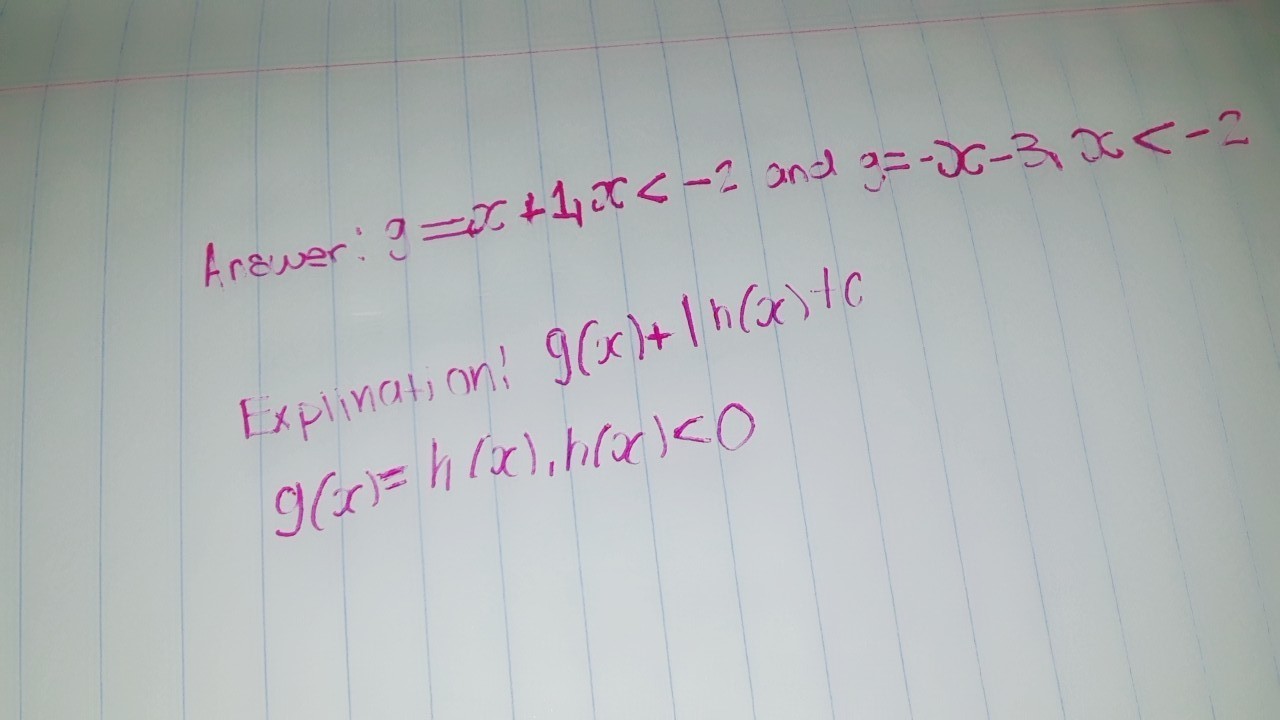 Answer: y = x + 1, x < -2 and y = -x - 3, x < -2
Explination! g(x) + |h(x) + c
g(x) = h(x), h(x) < 0